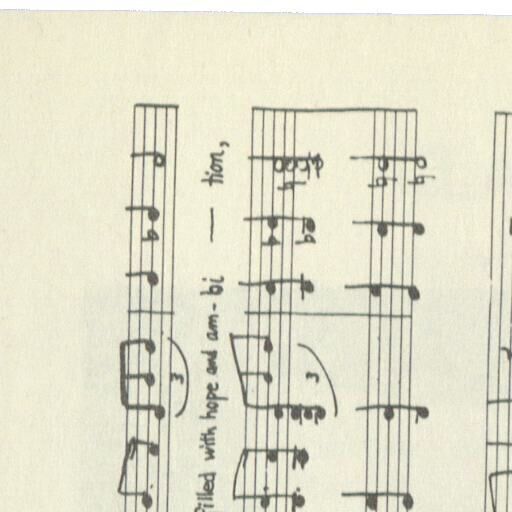 Filled with hope and am-bi — tion,
3
3